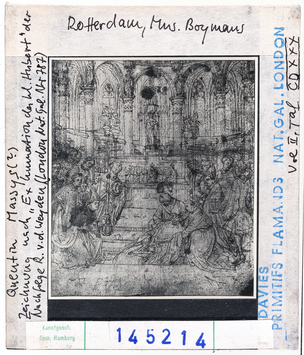 Rotterdam, Mus. Boymans
Quentin Massys (?)
Zeichnung nach "Exhumation des hl. Hubert" der
Nachfolge R. v. d. Weyden (London, Nat. Gal. Nr. 783)
DAVIES
PRIMITIFS FLAMANDS NAT. GAL. LONDON
Vol II, Taf. CDXXX
Kunstgesch.
Sem. Hamburg
145214